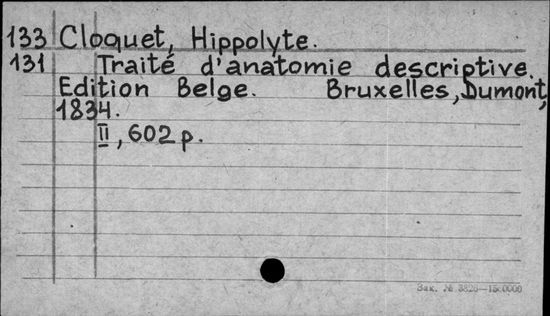 133 Cloquet, Hippolyte.
131 Traité d'anatomie descriptive.
Edition Belge. Bruxelles, Dumont,
1834.
II, 602 p.
Зак. №